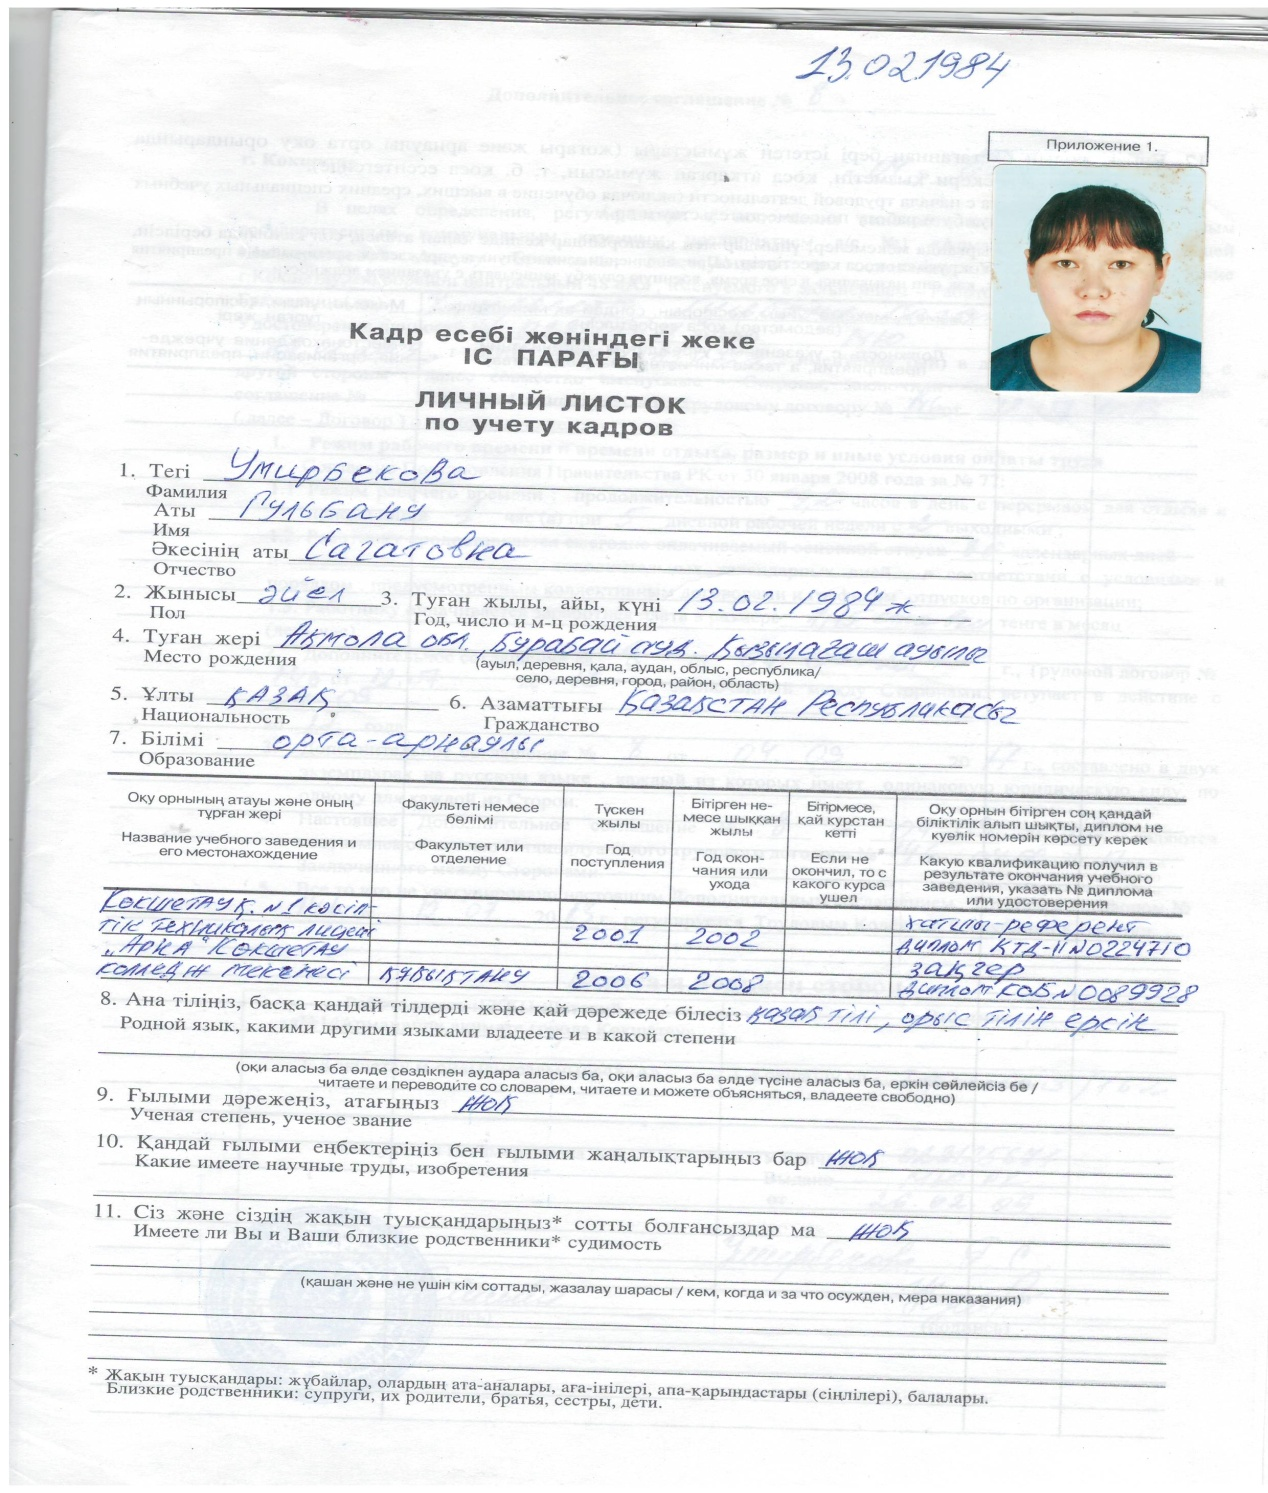 13.02.1984
Приложение 1.
Кадр есебі жөніндегі жеке
ІС ПАРАҒЫ
ЛИЧНЫЙ ЛИСТОК
по учету кадров
1. Тегі Умирбекова
Фамилия
Аты Гульбану
Имя
Әкесінің аты Сагатовна
Отчество
2. Жынысы әйел 3. Туған жылы, айы, күні 13.02.1984 ж
Пол Год, число и м-ц рождения
4. Туған жері Ақмола обл. Бурабай ауд. Қызылағаш ауылы
Место рождения (ауыл, деревня, қала, аудан, облыс, республика/
село, деревня, город, район, область)
5. Ұлты қазақ 6. Азаматтығы Қазақстан Республикасы
Национальность Гражданство
7. Білімі орта-арнаулы
Образование
Оқу орнының атауы және оның тұрған жері Факультеті немесе бөлімі Түскен жылы Бітірген немесе шыққан жылы Бітірмесе, қай курстан кетті Оқу орнын бітірген соң қандай біліктілік алып шықты, диплом не куәлік номерін көрсету керек
Название учебного заведения и его местонахождение Факультет или отделение Год поступления Год окончания или ухода Если не окончил, то с какого курса ушел Какую квалификацию получил в результате окончания учебного заведения, указать № диплома или удостоверения
Көкшетау қ. №1 кәсіп- хатшы-референт
тік техникалық лицейі 2001 2002 диплом КТД-II N0224710
„Арна" Көкшетау заңгер
колледж мекемесі құқықтану 2006 2008 диплом КОБ N0089928
8. Ана тіліңіз, басқа қандай тілдерді және қай дәрежеде білесіз қазақ тілі, орыс тілін еркін
Родной язык, какими другими языками владеете и в какой степени
(оқи аласыз ба әлде сөздікпен аудара аласыз ба, оқи аласыз ба әлде түсіне аласыз ба, еркін сөйлейсіз бе /
читаете и переводите со словарем, читаете и можете объясняться, владеете свободно)
9. Ғылыми дәрежеңіз, атағыңыз жоқ
Ученая степень, ученое звание
10. Қандай ғылыми еңбектеріңіз бен ғылыми жаңалықтарыңыз бар жоқ
Какие имеете научные труды, изобретения
11. Сіз және сіздің жақын туысқандарыңыз* сотты болғансыздар ма жоқ
Имеете ли Вы и Ваши близкие родственники* судимость
(қашан және не үшін кім соттады, жазалау шарасы / кем, когда и за что осужден, мера наказания)
* Жақын туысқандары: жұбайлар, олардың ата-аналары, аға-інілері, апа-қарындастары (сіңлілері), балалары.
Близкие родственники: супруги, их родители, братья, сестры, дети.